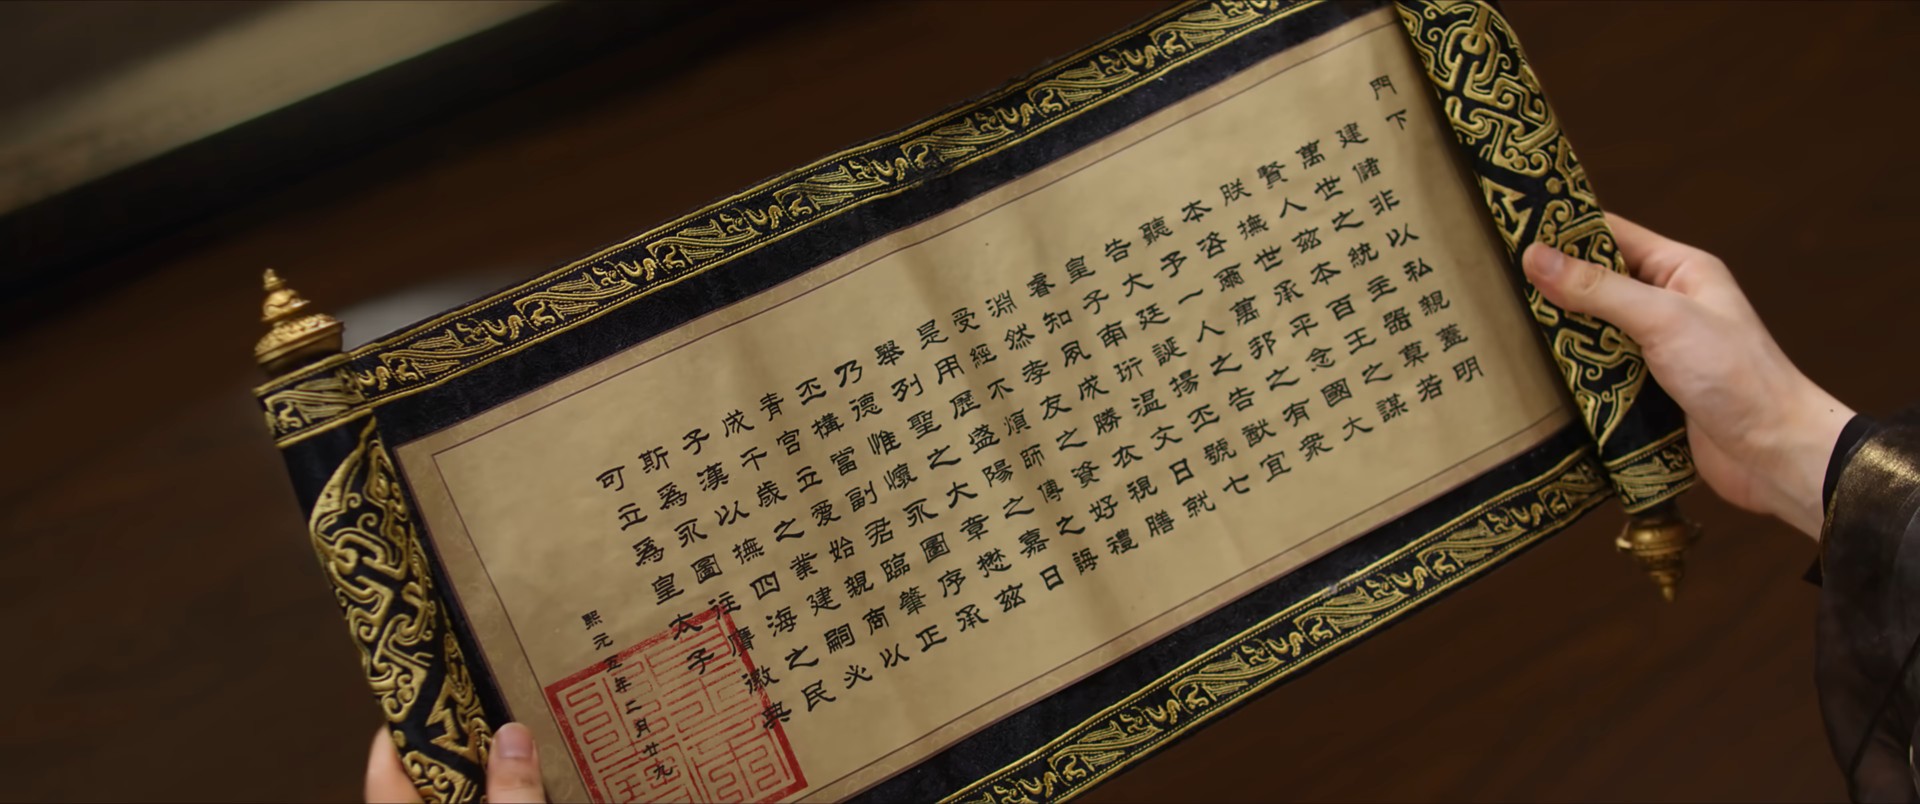 門下
建儲非以私親蓋明
萬世之統主器莫若
賢人茲本百王之謀
朕撫世承平念國大
本咨爾萬邦之有衆
聽予一人之告猷宜
告大廷誕揚丕號七
皇子南珩溫文日就
睿知夙成勝衣視膳
淵然孝友之資好禮
受經不煩師傳之誨
是用歷盛陽之嘉日
舉列聖之大章懋茲
乃德惟懷永圖序承
丕構當副君臨肇正
青宮立愛始親商以
成千歲之業建嗣必
子漢以撫四海之民
斯爲永圖往膺徽典
可立爲皇太子
熙元五年二月廿九